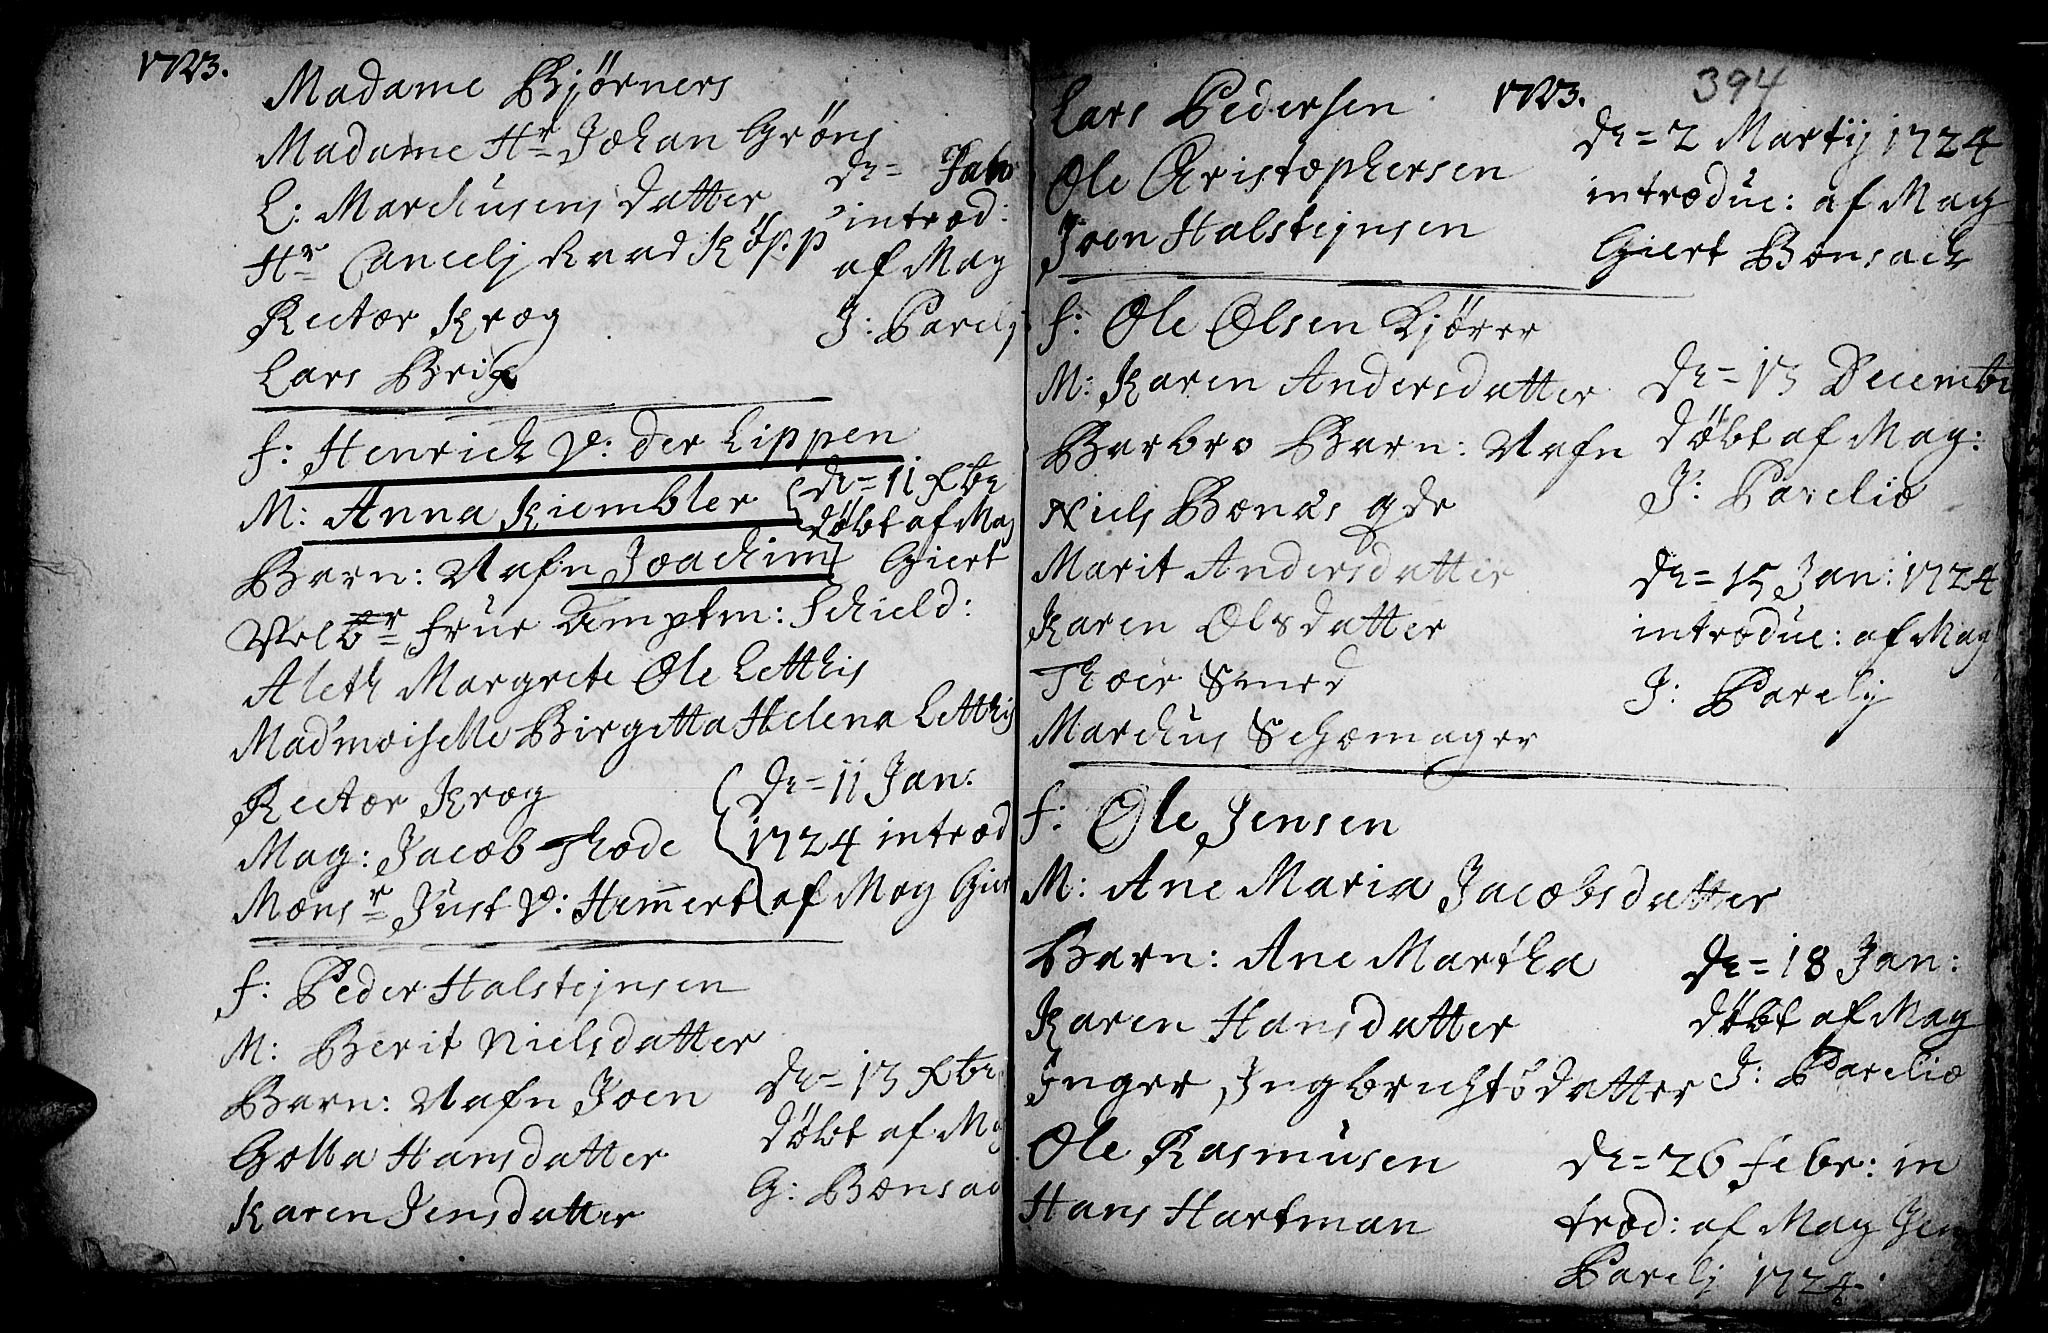 1723.
Madame Bjørners
Madame Hr Johan Grøns
L: Marchusens datter
Hr Cancelj Raad Köpp
Rector Krog
Lars Brix
dn= Jan
introd:
af Mag
J: Parelj
f: Henrich V: der Lippen
M: Anna Kiembler
Barn: Nafn Joachim
dn= 11 Xbr
döbt af Mag
Giert
Velbr frue Amptm: Schield:
Aleth Margrete Ole Letthis
Mad'moiselle Birgitta Helena Letthis
Rector Krog
Mag: Jacob Thode
Monsr Just V: Hemert
dn= 11 Jan:
1724 introd
af Mag Giert
f: Peder Halstejnsen
M: Berit Nielsdatter
Barn: Nafn Joen
Golla Hansdatter
Karen Jensdatter
dn= 13 Xbr
döbt af Mag
G: Bonsac
1723.
394
Lars Pedersen
Ole Cristophersen
Joen Halstejnsen
dn= 2 Martij 1724
introduc: af Mag
Giert Bonsack
f: Ole Olsen Kjörer
M: Karen Andersdatter
Barbro Barn: Nafn
Niels Bonus
Marit Andersdatter
Karen Olsdatter
Thoer Smed
Marchus Schomager
dn= 13 Decembr
döbt af Mag:
J: Parelio
dn= 15 Jan: 1724
introduc: af Mag
J: Parelij
f: Ole Jensen
M: Ane Maria Jacobsdatter
Barn: Ane Martha
Karen Hansdatter
Inger Ingbrichtsdatter
Ole Rasmusen
Hans Hartman
dn= 18 Jan:
döbt af Mag
J: Parelio
dn= 26 Febr: in
trod: af Mag Jen
Parelj 1724.